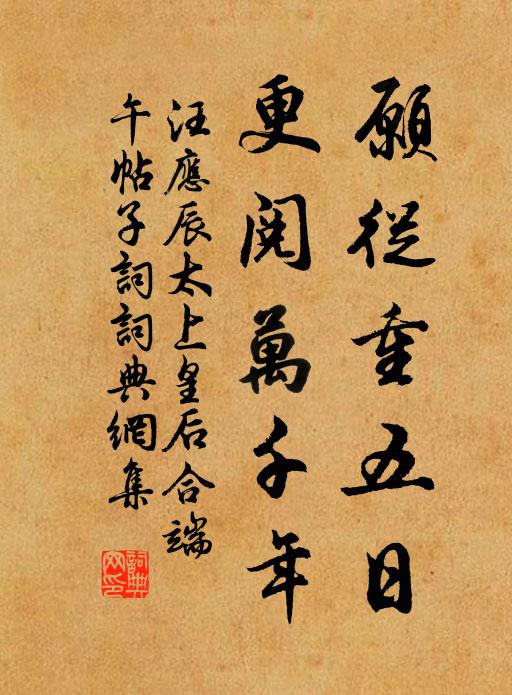 願從重五日
更閱萬千年
汪應辰太上皇后合端
午帖子詞詞典網集
詞典網印